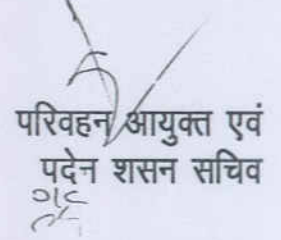 परिवहन आयुक्त एवं
पदेन शसन सचिव